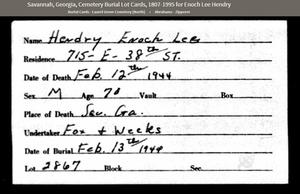 Savannah, Georgia, Cemetery Burial Lot Cards, 1807-1995 for Enoch Lee Hendry
Burial Cards - Laurel Grove Cemetery (North) > Abrahams - Zipperer
Name Hendry Enoch Lee
Residence 715- E- 38th ST.
Date of Death Feb. 12th 1944
Sex M Age 70 Vault Box
Place of Death Sav. Ga.
Undertaker Fox & Weeks
Date of Burial Feb. 13th 1944
Lot 2867 Block Sec.